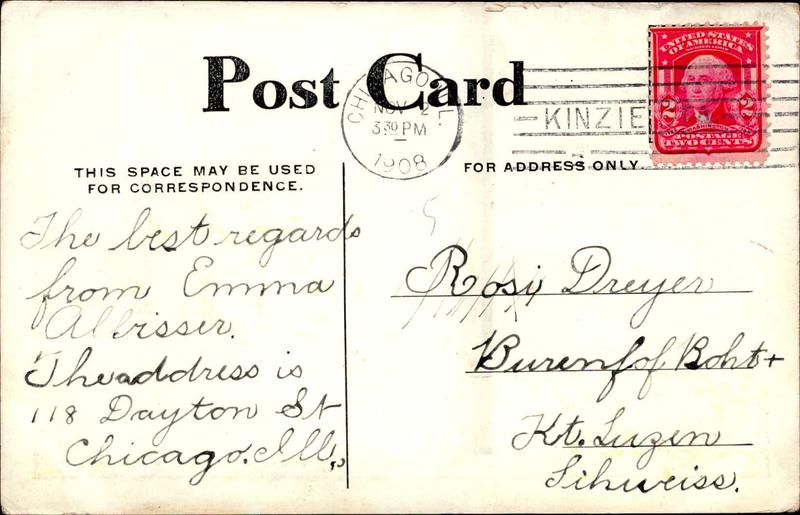 Post Card
CHICAGO, ILL
NOV 2
3 30 PM
1908
KINZIE
UNITED STATES
OF AMERICA
2 2
POSTAGE
TWO CENTS
THIS SPACE MAY BE USED
FOR CORRESPONDENCE.
FOR ADDRESS ONLY.
The best regards
from Emma
Albisser.
The address is
118 Dayton St
Chicago. Ill.
5
Rosi Dreyer
Burenfof Boht
Kt. Luzen
Sihweiss.